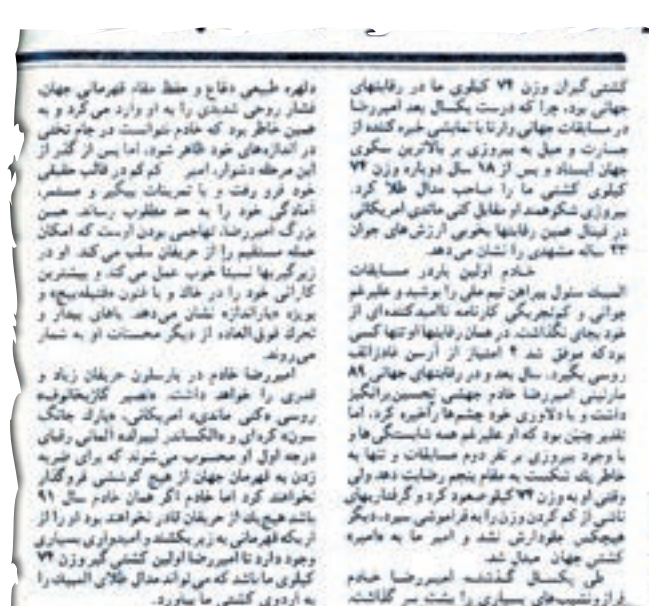 کشتی گیران وزن ۷۴ کیلوی ما در رقابتهای
جهانی بود، چرا که درست یکسال بعد امیررضا
در مسابقات جهانی وارنا با نمایشی خیره کننده از
جسارت و میل به پیروزی بر بالاترین سکوی
جهان ایستاد و پس از ۱۸ سال دوباره وزن ۷۴
کیلوی کشتی ما را صاحب مدال طلا کرد.
پیروزی شکوهمند او مقابل کنی ماندی امریکائی
در فینال همین رقابتها بخوبی ارزش های جوان
۲۳ ساله مشهدی را نشان می دهد.
خادم اولین بار در مسابقات
المپیک سئول پیراهن تیم ملی را پوشید و علیرغم
جوانی و کم تجربگی کارنامه ناامیدکننده ای از
خود بجای نگذاشت، در همان رقابتها او تنها کسی
بود که موفق شد ۴ امتیاز از آرسن فادزائف
روسی بگیرد. سال بعد و در رقابتهای جهانی ۸۹
مارتینی امیررضا خادم جهشی تحسین برانگیز
داشت و با دلاوری خود چشمها را خیره کرد، اما
تقدیر چنین بود که او علیرغم همه شایستگی ها و
با وجود پیروزی بر نفر دوم مسابقات و تنها به
خاطر یک شکست به مقام پنجم رضایت دهد ولی
وقتی او به وزن ۷۴ کیلو صعود کرد و گرفتاریهای
ناشی از کم کردن وزن را به فراموشی سپرد، دیگر
هیچکس جلودارش نشد و امیر ما به «امیر»
کشتی جهان مبدل شد.
طی یکسال گذشته امیررضا خادم
فرازونشیب های بسیاری را پشت سر گذاشت.
دلهره طبیعی دفاع و حفظ مقام قهرمانی جهان،
فشار روحی شدیدی را به او وارد می کرد و به
همین خاطر بود که خادم نتوانست در جام تختی
در اندازه های خود ظاهر شود، اما پس از گذر از
این مرحله دشوار، امیر کم کم در قالب حقیقی
خود فرو رفت و با تمرینات پیگیر و مستمر،
آمادگی خود را به حد مطلوب رساند. حسن
بزرگ امیررضا، تهاجمی بودن اوست که امکان
حمله مستقیم را از حریفان سلب می کند. او در
زیرگیریها نسبتاً خوب عمل می کند و بیشترین
کارائی خود را در خاک و با فنون «فتیله پیچ» و
بویژه «بارانداز» نشان می دهد. پاهای بیدار و
تحرک فوق العاده از دیگر محسنات او به شمار
می روند.
امیررضا خادم در بارسلون حریفان زیاد و
قدری را خواهد داشت. «نصیر گازیخانوف»
روسی «کنی ماندی» امریکائی، «پارک جانگ
سون» کره ای و «الکساندر لیپولد» آلمانی رقبای
درجه اول او محسوب می شوند که برای ضربه
زدن به قهرمان جهان از هیچ کوششی فروگذار
نخواهند کرد اما خادم اگر همان خادم سال ۹۱
باشد هیچ یک از حریفان قادر نخواهند بود او را از
اریکه قهرمانی به زیر بکشند و امیدواری بسیاری
وجود دارد تا امیررضا اولین کشتی گیر وزن ۷۴
کیلوی ما باشد که می تواند مدال طلای المپیک را
به اردوی کشتی ما بیاورد.